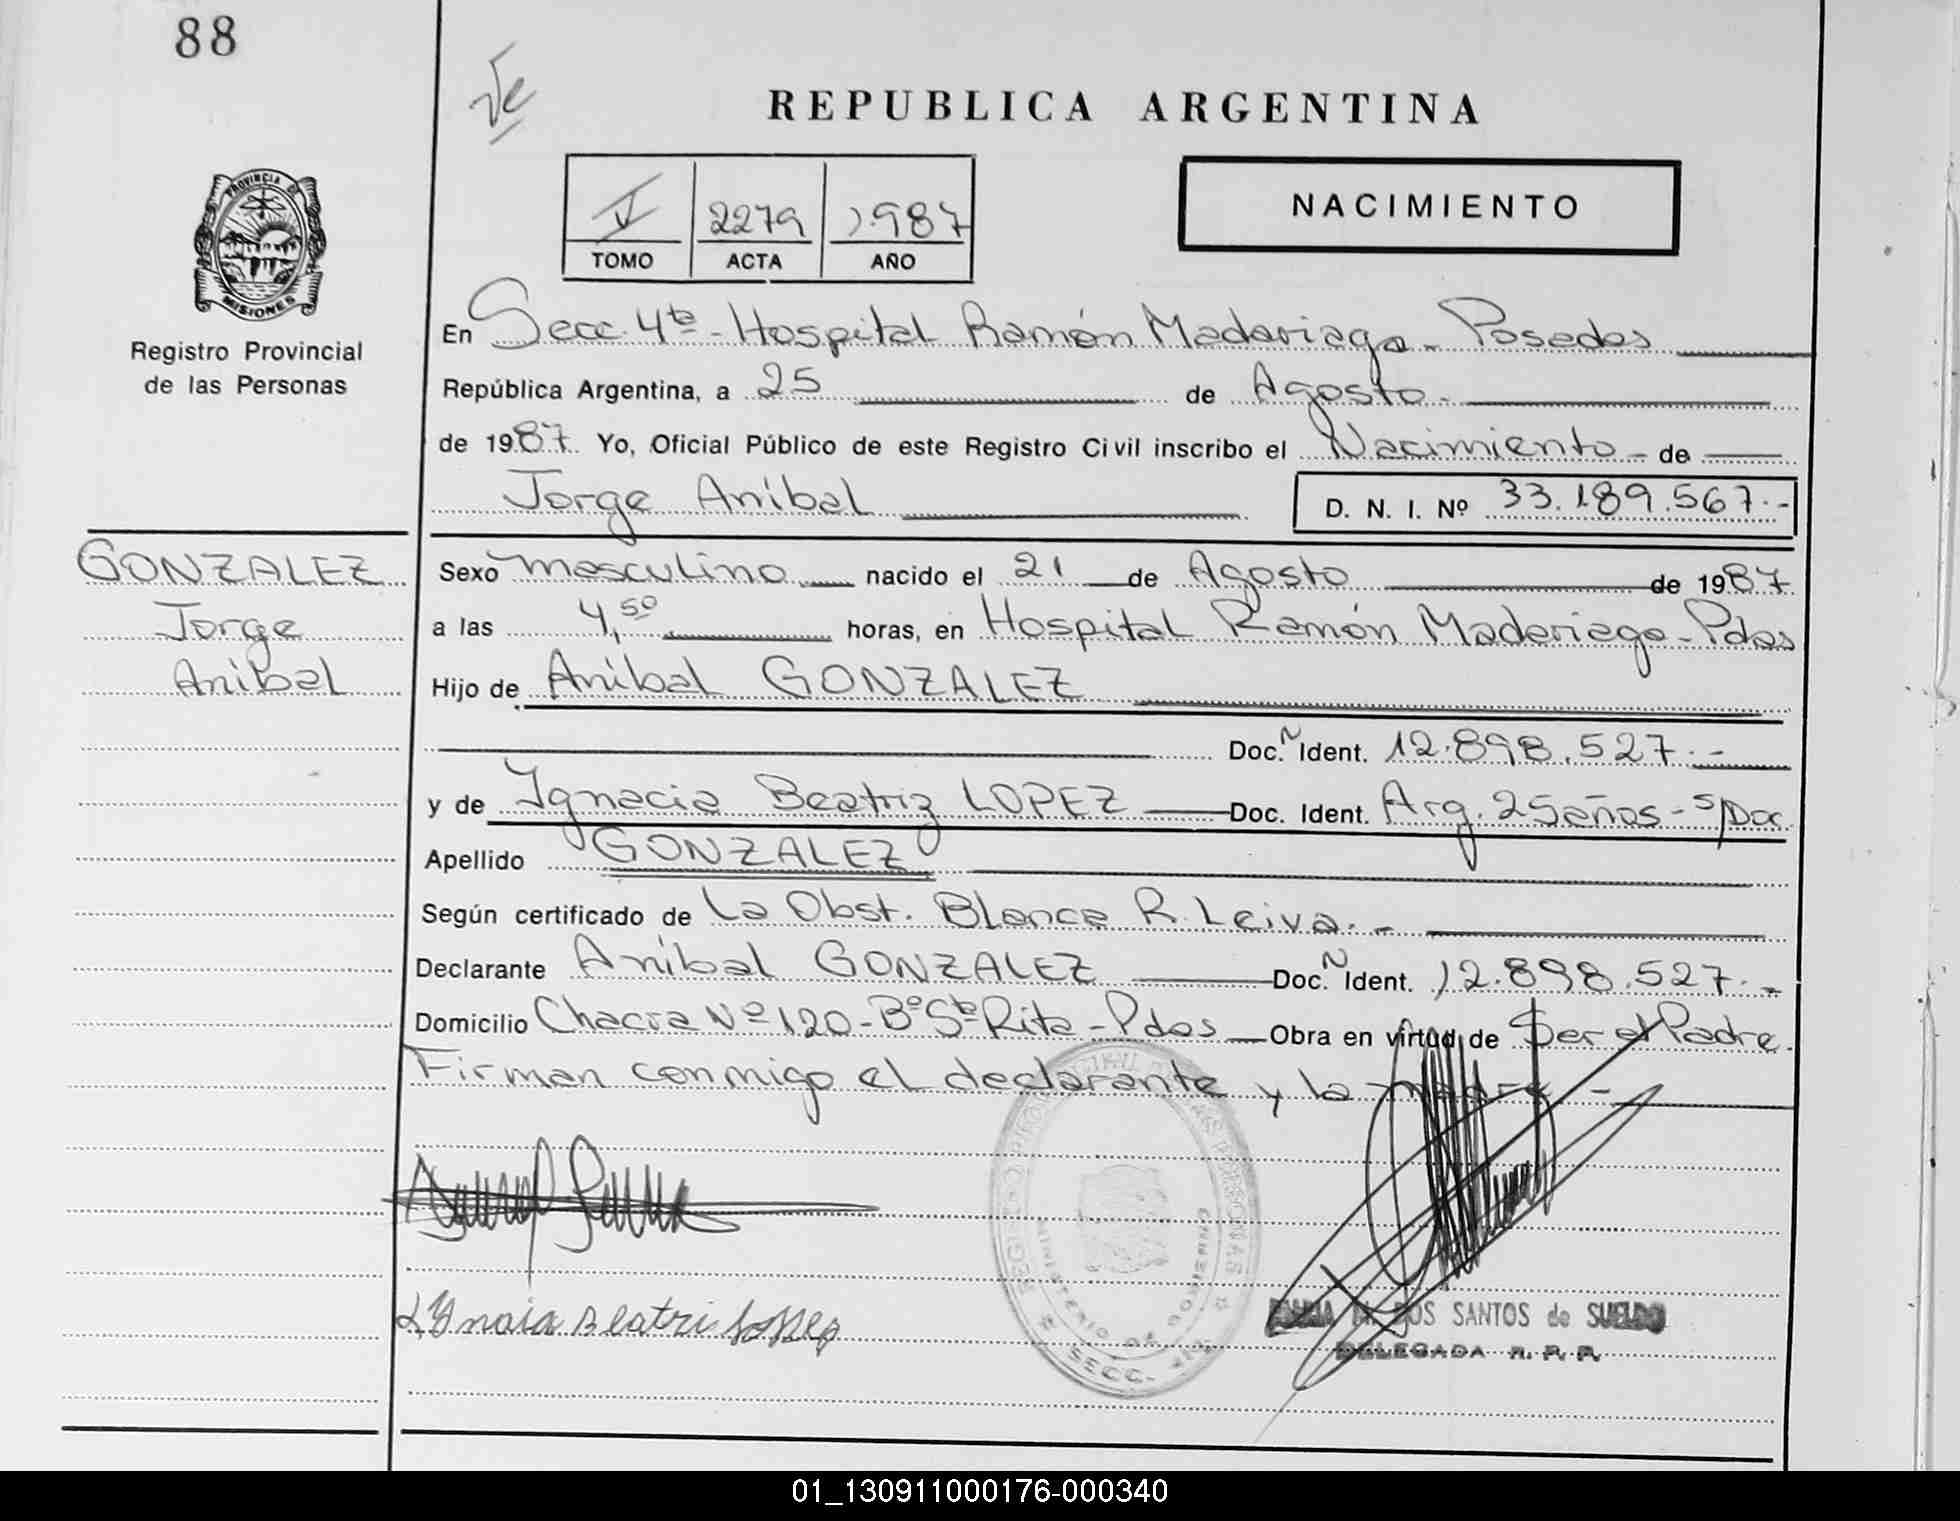 88
REPUBLICA ARGENTINA
PROVINCIA DE
MISIONES
Registro Provincial
de las Personas
2279 1.987
TOMO ACTA AÑO
NACIMIENTO
En Secc. 4ta - Hospital Ramón Madariaga - Posadas
República Argentina, a 25 de Agosto -
de 1987. Yo, Oficial Público de este Registro Civil inscribo el Nacimiento - de
Jorge Aníbal D. N. I. Nº 33.189.567.-
GONZALEZ
Jorge
Aníbal
Sexo masculino nacido el 21 de Agosto de 1987
a las 4,50 horas, en Hospital Ramón Madariaga - Pdas
Hijo de Aníbal GONZALEZ
Doc. N Ident. 12.898.527.-
y de Ygnacia Beatriz LOPEZ Doc. Ident. Arg. 25 años - s/Doc.
Apellido GONZALEZ
Según certificado de La Obst. Blanca R. Leiva. -
Declarante Aníbal GONZALEZ Doc. N Ident. 12.898.527.-
Domicilio Chacra Nº 120 - Bº Sta Rita - Pdas Obra en virtud de Ser el Padre.
Firman conmigo el declarante y la madre -
DOS SANTOS de SUELDO
DELEGADA R. P. P.
01_130911000176-000340